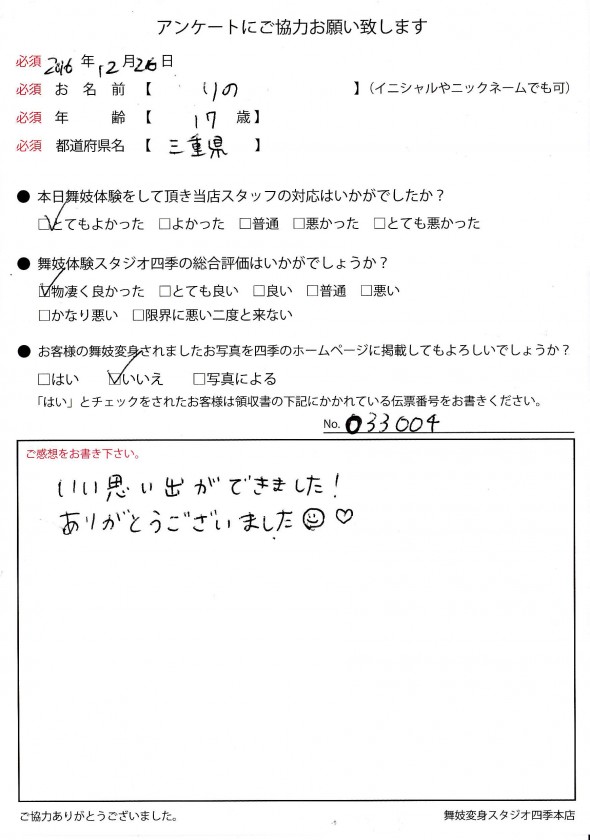 アンケートにご協力お願い致します
必須 2016年12月26日
必須 お名前【 りの 】（イニシャルやニックネームでも可）
必須 年齢【 17 歳】
必須 都道府県名【 三重県 】
● 本日舞妓体験をして頂き当店スタッフの対応はいかがでしたか？
☑とてもよかった □よかった □普通 □悪かった □とても悪かった
● 舞妓体験スタジオ四季の総合評価はいかがでしょうか？
☑物凄く良かった □とても良い □良い □普通 □悪い
□かなり悪い □限界に悪い二度と来ない
● お客様の舞妓変身されましたお写真を四季のホームページに掲載してもよろしいでしょうか？
□はい ☑いいえ □写真による
「はい」とチェックをされたお客様は領収書の下記にかかれている伝票番号をお書きください。
No. 033004
ご感想をお書き下さい。
いい思い出ができました！
ありがとうございました☺♡
ご協力ありがとうございました。 舞妓変身スタジオ四季本店